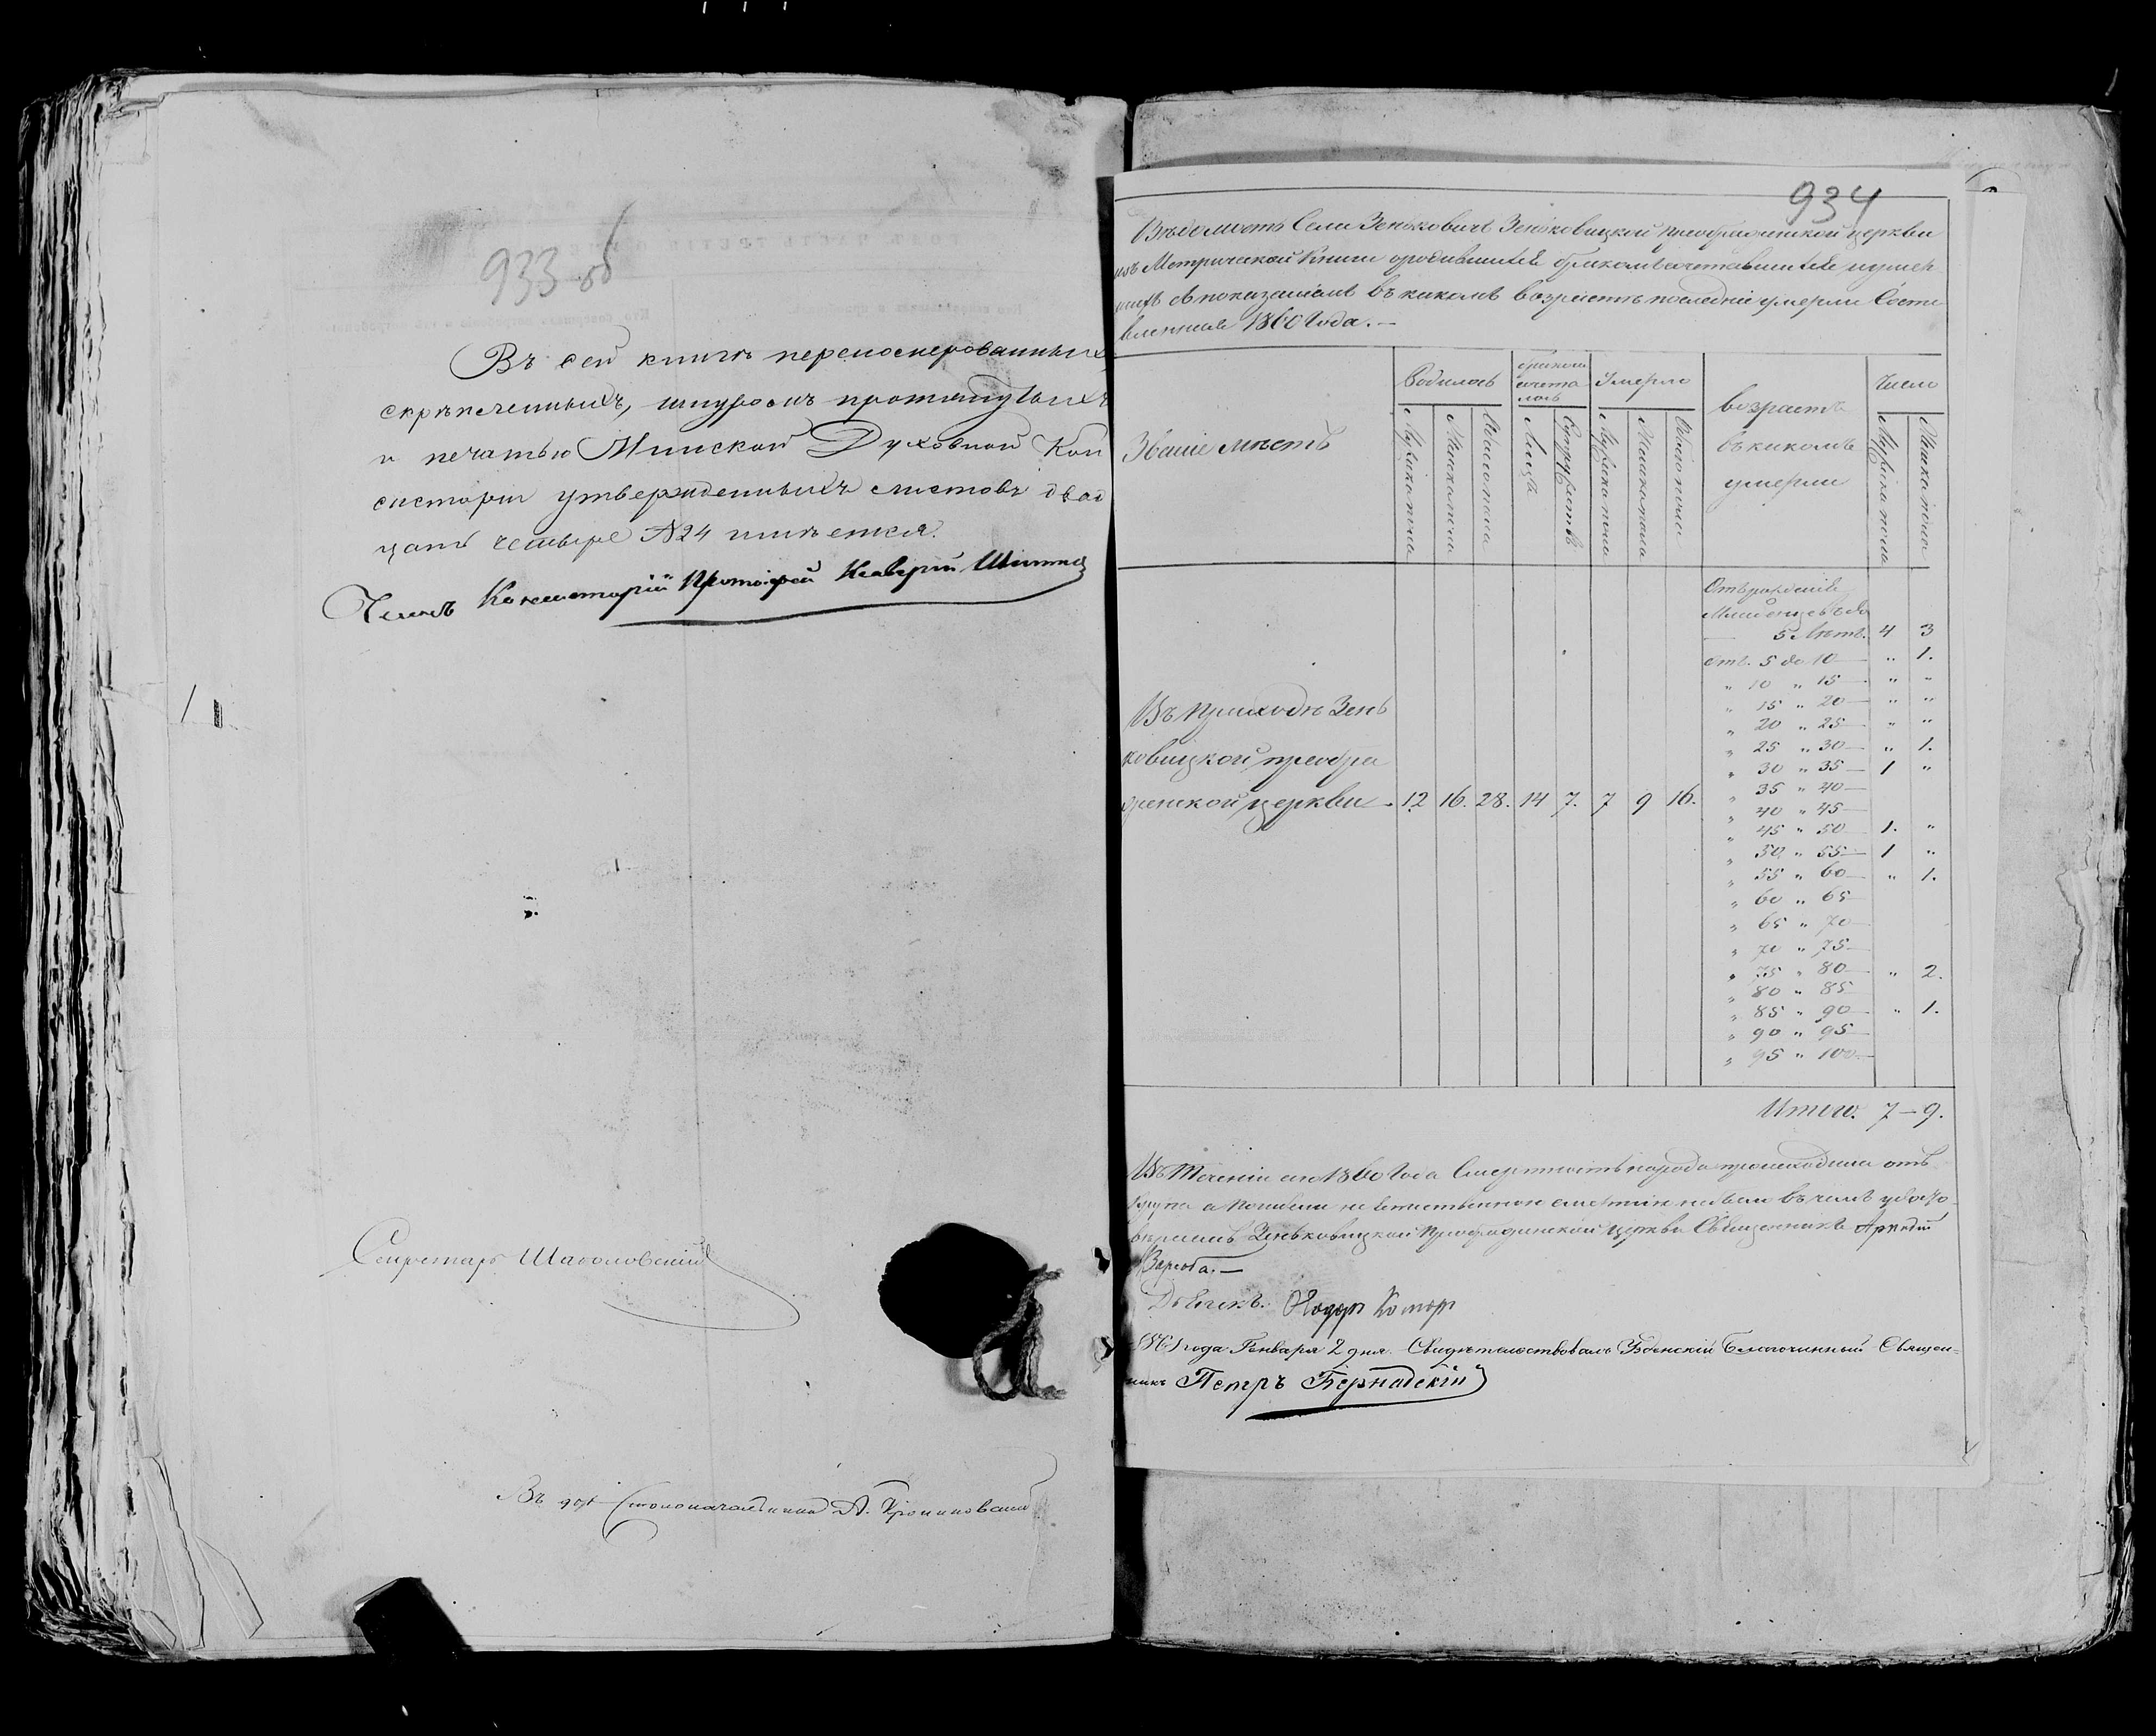 933 об
Въ сей книгѣ перенómерованныхъ,
скрѣпленныхъ, шнуромъ протянутыхъ
и печатью Минской Духовной Кон
систоріи утвержденныхъ листовъ двад
цать четыре №24 имѣется.
Членъ Консисторіи Протоіерей
Секретарь
Въ дол. Столоначальника А.
934
Вѣдомость Села Зеньковичъ Зеньковицкой преображенской церкви
изъ Метрической Книги о родившихся бракомъ сочетавшихся и умер
шихъ съ показаніемъ въ какомъ возрастѣ последніе умерли Соста
вленная 1860 Года. —
Званіе мѣстъ
Родилось
бракомъ
сочета
лось
Умерло
возрастъ
въ какомъ
умерли
Число
Мужска пола
Женска пола
Обоего пола
Лицъ
Супружествъ
Мужска пола
Женска пола
Обоего пола
Мужска пола
Женска пола
Отъ рожденія
Младенцевъ до
5 Лѣтъ. 4 3
отъ. 5 до 10 — " 1.
" 10 " 15 — " "
" 15 " 20 — " "
" 20 " 25 — " "
" 25 " 30 — " 1.
" 30 " 35 — 1 "
" 35 " 40 —
" 40 " 45 —
" 45 " 50 1. "
" 50 " 55 — 1 "
" 55 " 60 — " 1.
" 60 " 65
" 65 " 70
" 70 " 75 —
" 75 " 80 — " 2.
" 80 " 85
" 85 " 90 — " 1.
" 90 " 95 —
" 95 " 100 —
Въ Приходѣ Зень
ковицкой преобра
женской церкви — 12 16. 28. 14 7. 7 9 16.
Итого. 7 — 9.
Въ Теченіи сего 1860 Года Смертность народа происходила отъ
въ чемъ удосто
вѣряемъ Зеньковицкой Преображенской церкви Священникъ Аркадій
Дьячекъ.
1861 года Генваря 2 дня. Свидѣтельствовалъ Узденскій Благочинный Священ=
никъ Петръ Бернадскій